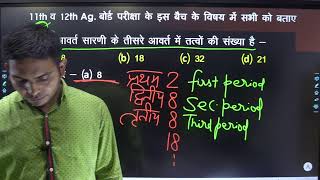 11th व 12th Ag. बोर्ड परीक्षा के इस बैच के विषय में सभी को बताए
आवर्त सारणी के तीसरे आवर्त में तत्वों की संख्या है –
(b) 18 (c) 32 (d) 21
– (a) 8
प्रथम 2 first period
द्वितीय 8 Sec. period
तृतीय 8 Third period
18